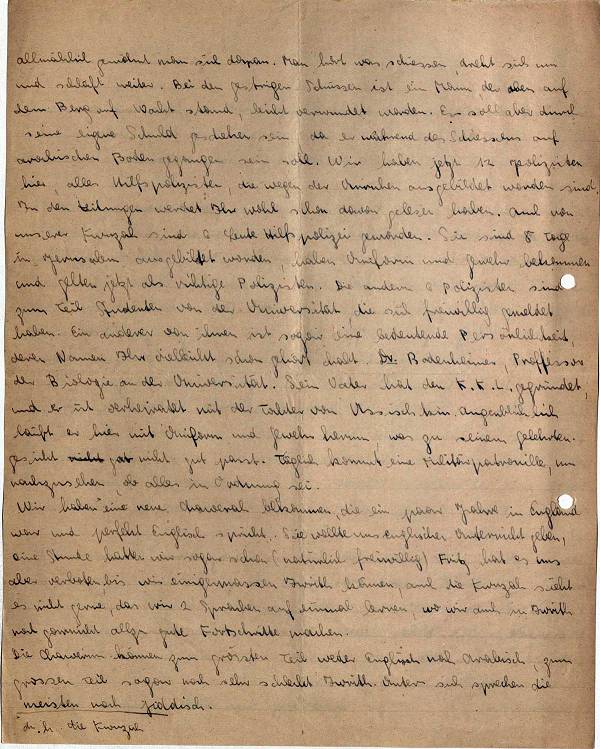 allmählich gewöhnt man sich daran. Man hört was schiessen, dreht sich um
und schläft weiter. Bei den gestrigen Schüssen ist ein Mann der oben auf
dem Berg auf Wacht stand, leicht verwundet worden. Es soll aber durch
seine eigne Schuld geschehen sein, da er während des Schiessens auf
arabischen Boden gegangen sein soll. Wir haben jetzt 12 Polizisten
hier, alles Hilfspolizisten, die wegen der Unruhen ausgebildet worden sind.
In den Zeitungen werdet Ihr wohl schon davon gelesen haben. Auch von
unserer Kwuzah sind 6 Leute Hilfspolizei geworden. Sie sind 8 Tage
in Jerusalem ausgebildet worden, haben Uniform und Gewehr bekommen
und gelten jetzt als richtige Polizisten. Die andern 6 Polizisten sind
zum Teil Studenten von der Universität die sich freiwillig gemeldet
haben. Ein anderer von ihnen ist sogar eine bedeutende Persönlichkeit,
deren Namen Ihr vielleicht schon gehört habt. Dr. Bodenheimer, Proffessor
der Biologie an der Universität. Sein Vater hat den K.K.L. gegründet,
und er ist verheiratet mit der Tochter von Ussischkin. Augenblicklich
läuft er hier mit Uniform und Gewehr herum was zu seinem gelehrten-
gesicht nicht gut passt. Täglich kommt eine Militärpatrouille, um
nachzusehen, ob alles in Ordnung sei.
Wir haben eine neue Chawerah bekommen, die ein paar Jahre in England
war und perfekt Englisch spricht. Sie wollte uns englischen Unterricht geben,
eine Stunde hatten wir sogar schon (natürlich freiwillig) Fritz hat es uns
aber verboten, bis wir einigermassen Iwrith können, auch die Kwuzah sieht
es nicht gerne, das wir 2 Sprachen auf einmal lernen, wo wir auch in Iwrith
noch garnicht allzu gute Fortschritte machen.
Die Chawerim können zum grössten Teil weder Englisch noch Arabisch, zum
grossen Teil sogar noch sehr schlecht Iwrith. Unter sich sprechen die
meisten noch jiddisch.
d.h. die Kwuzah